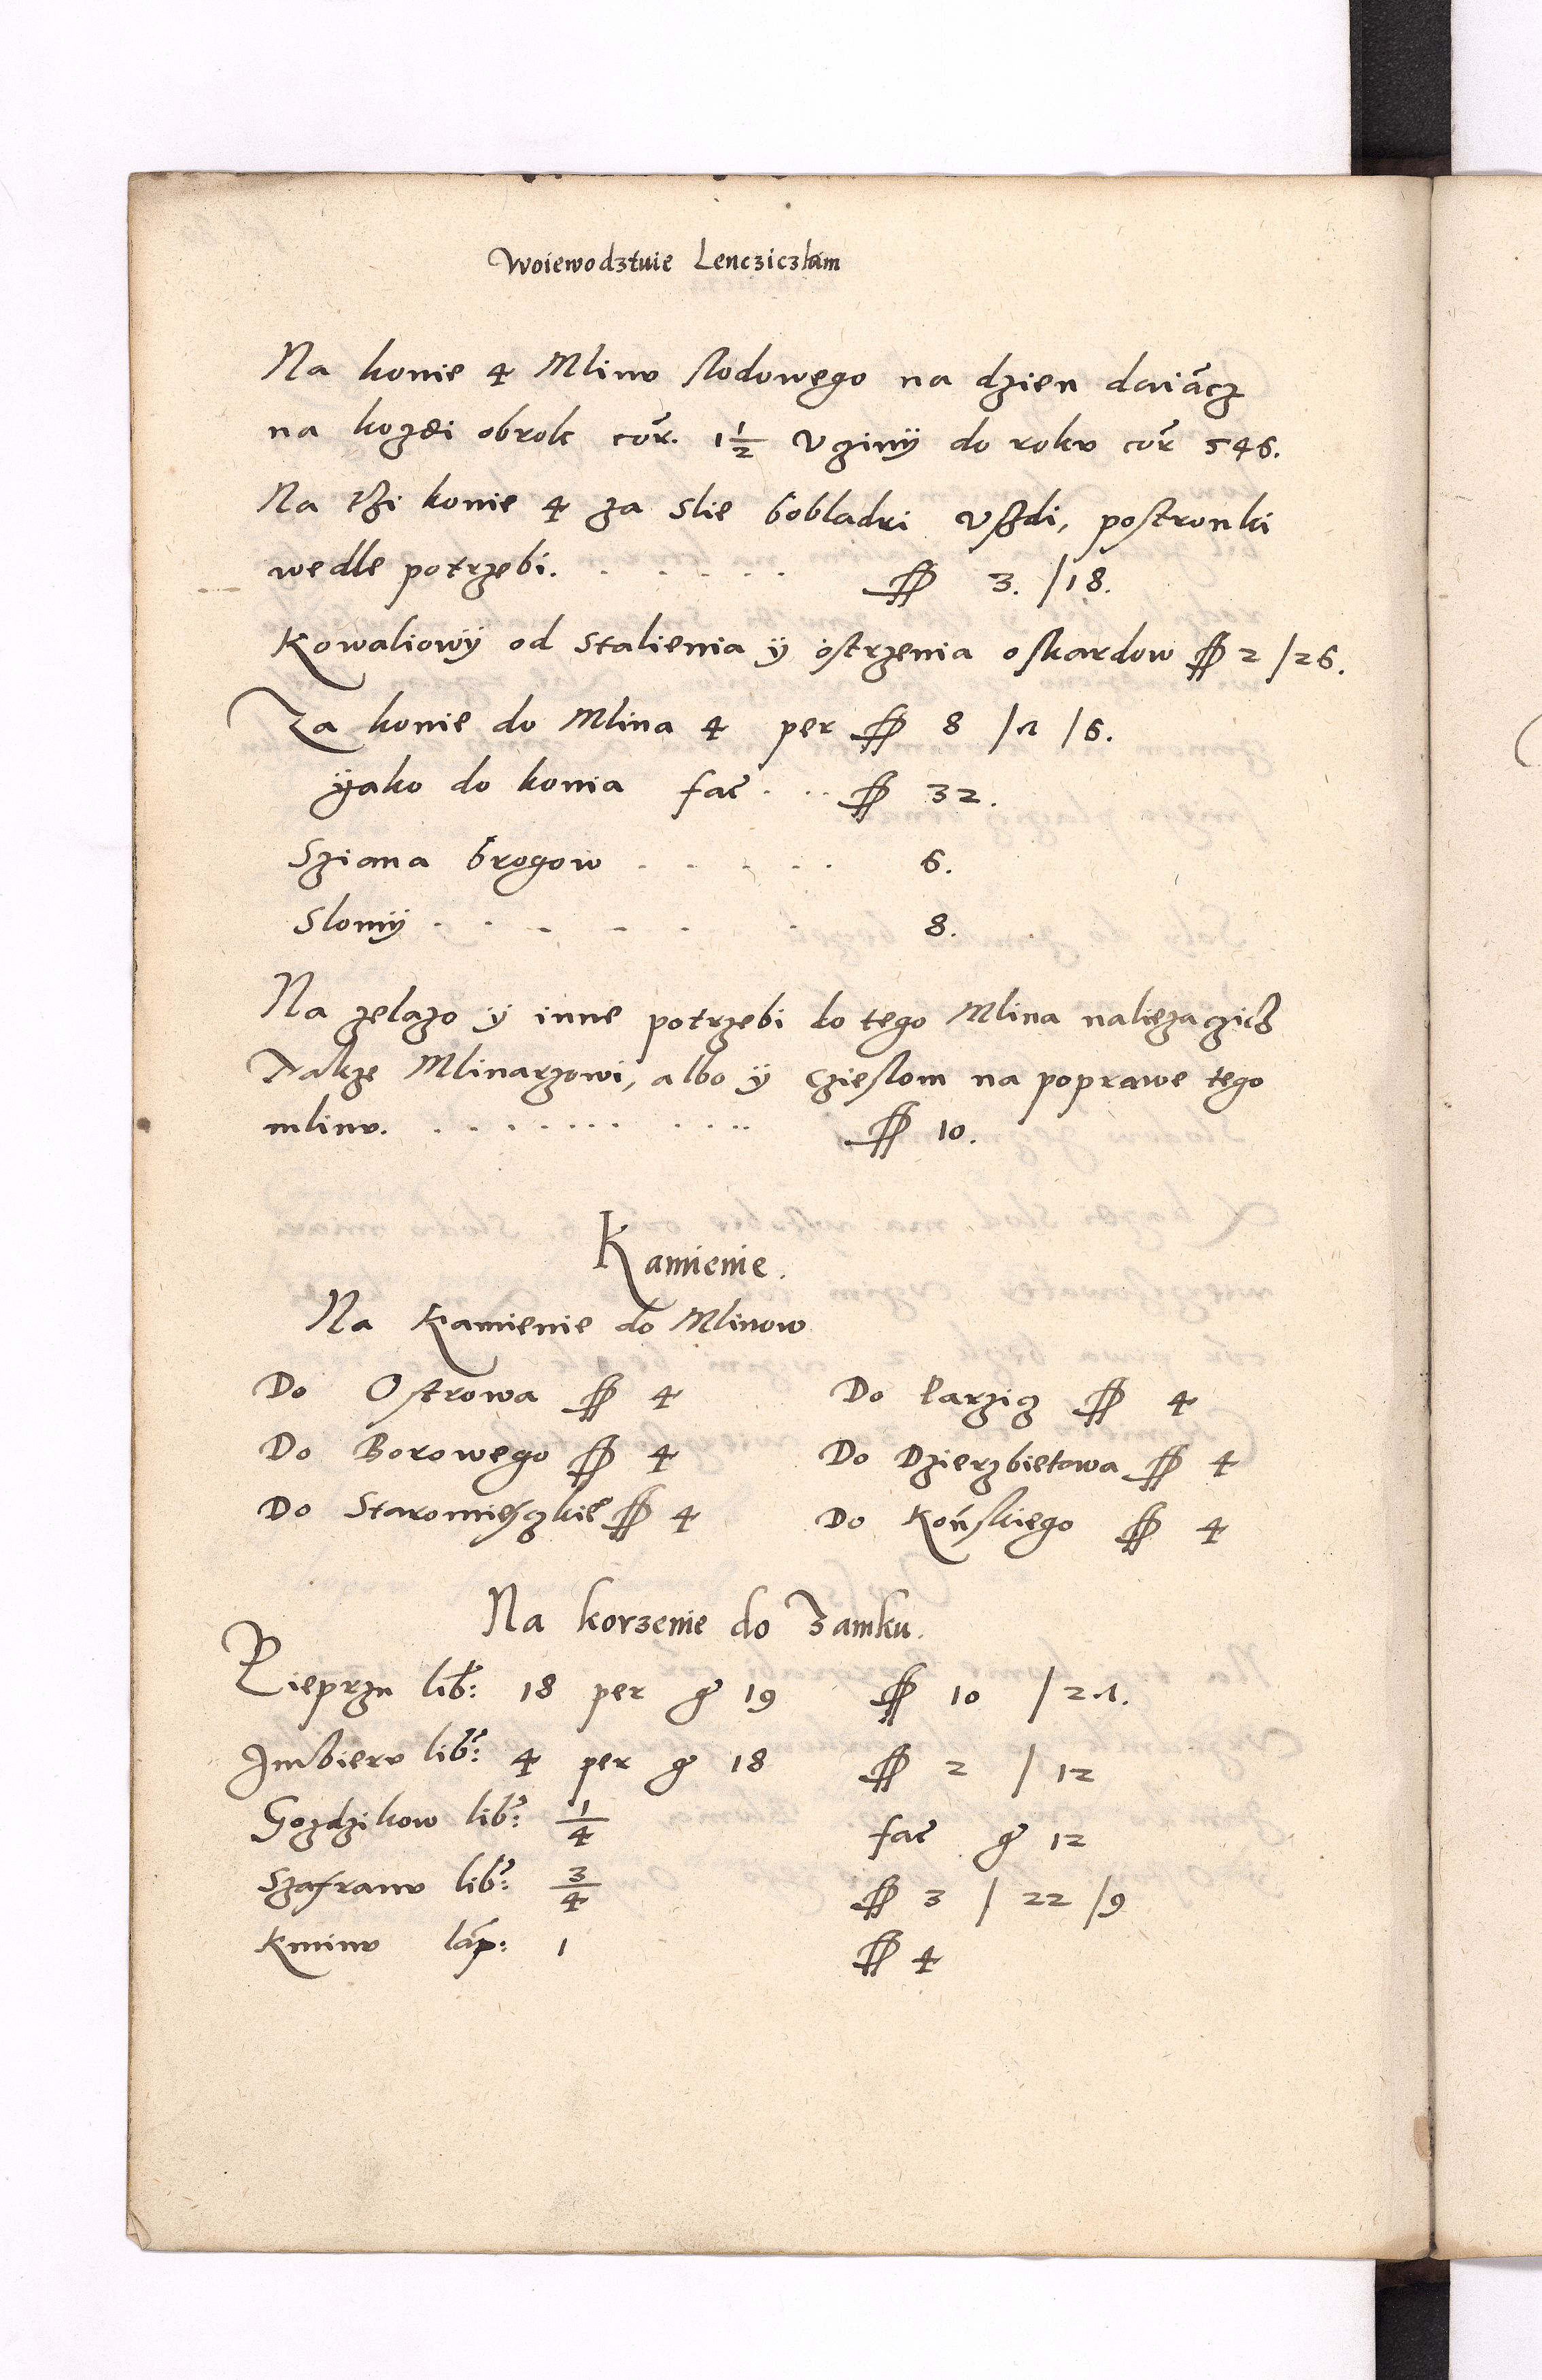 Woiewodztwie Lencziczkim
Na konie 4 Mlinu slodowego na dzien daiącz
na kozdi obrok cor. 1 1/2 Vginÿ do roku cor 546.
Na thi konie 4 za slie Uzdi, postronki
wedle potrzebi. . . . . . ſſ 3. /18.
Kowaliowÿ od Stalienia ÿ ostrzenia oskardow ſſ 2 /26.
Za konie do Mlina 4 per ſſ 8 /1 /6.
ÿako do konia fac . . . ſſ 32.
Sziana brogow . . . . . 6.
Slomÿ . . . . . . 8.
Na zelazo ÿ inne potrzebi do tego Mlina naliezaczich
Takze Mlinarzowi, albo ÿ czieslom na poprawe tego
mlinu. . . . . . . . . . . ſſ 10.
Kamienie.
Na Kamienie do Mlinow
Do Ostrowa ſſ 4 Do Larzicz ſſ 4
Do Borowego ſſ 4 Do Dzierzbietowa ſſ 4
Do Staromiesczkie ſſ 4 Do Końskiego ſſ 4
Na korzenie do Zamku.
Pieprzu lib: 18 per g 19 ſſ 10 /21.
Imbieru lib: 4 per g 18 ſſ 2 / 12
Gozdzikow lib: 1/4 fac g 12
Szafranu lib: 3/4 ſſ 3 / 22 /9
Kminu lap: 1 ſſ 4